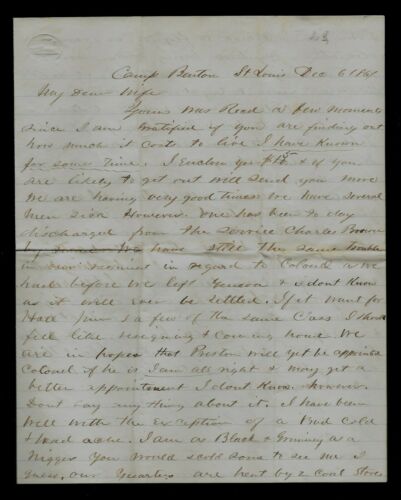 43
Camp Benton St Louis Dec 6/61
My Dear Wife
Yours was Read a few moments
since I am gratified if you are finding out
how much it costs to live I have Known
for some Time. I Enclose you $15 & if you
are likely to get out will Send you more
We are having very good times we have several
men sick However. one has been to day
discharged from the service Charles Brown
We have still the same trouble
in our regiment in regard to Colonels as we
had before We left & I dont Know
as it will ever be settled. If it want for
Hall & a few of the same Class I should
fell like resigning & coming home We
are in hopes that will yet be appointed
Colonel if he is I am all right & may get a
better appointment I dont Know however.
Dont say any thing about it. I have been
Well with the exception of a Bad Cold
& head ache. I am as Black & as a
Nigger You would scold some to see me I
guess, our quarters are heat by 2 Coal Stoves